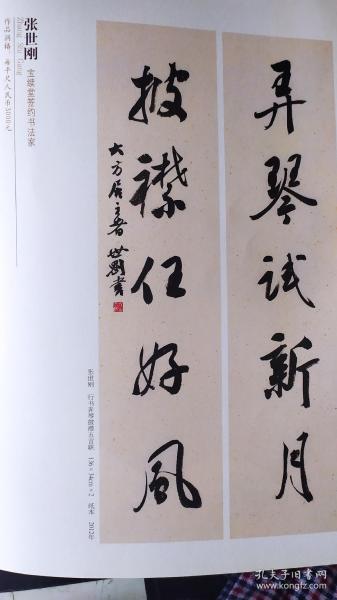 弄琴试新月
披襟任好风
大方居主人 世刚书
张世刚
Zhang Shi Gang
宝缘堂签约书法家
作品润格：每平尺人民币3000元
张世刚 行书弄琴披襟五言联 136×34cm×2 纸本 2012年
孔夫子旧书网